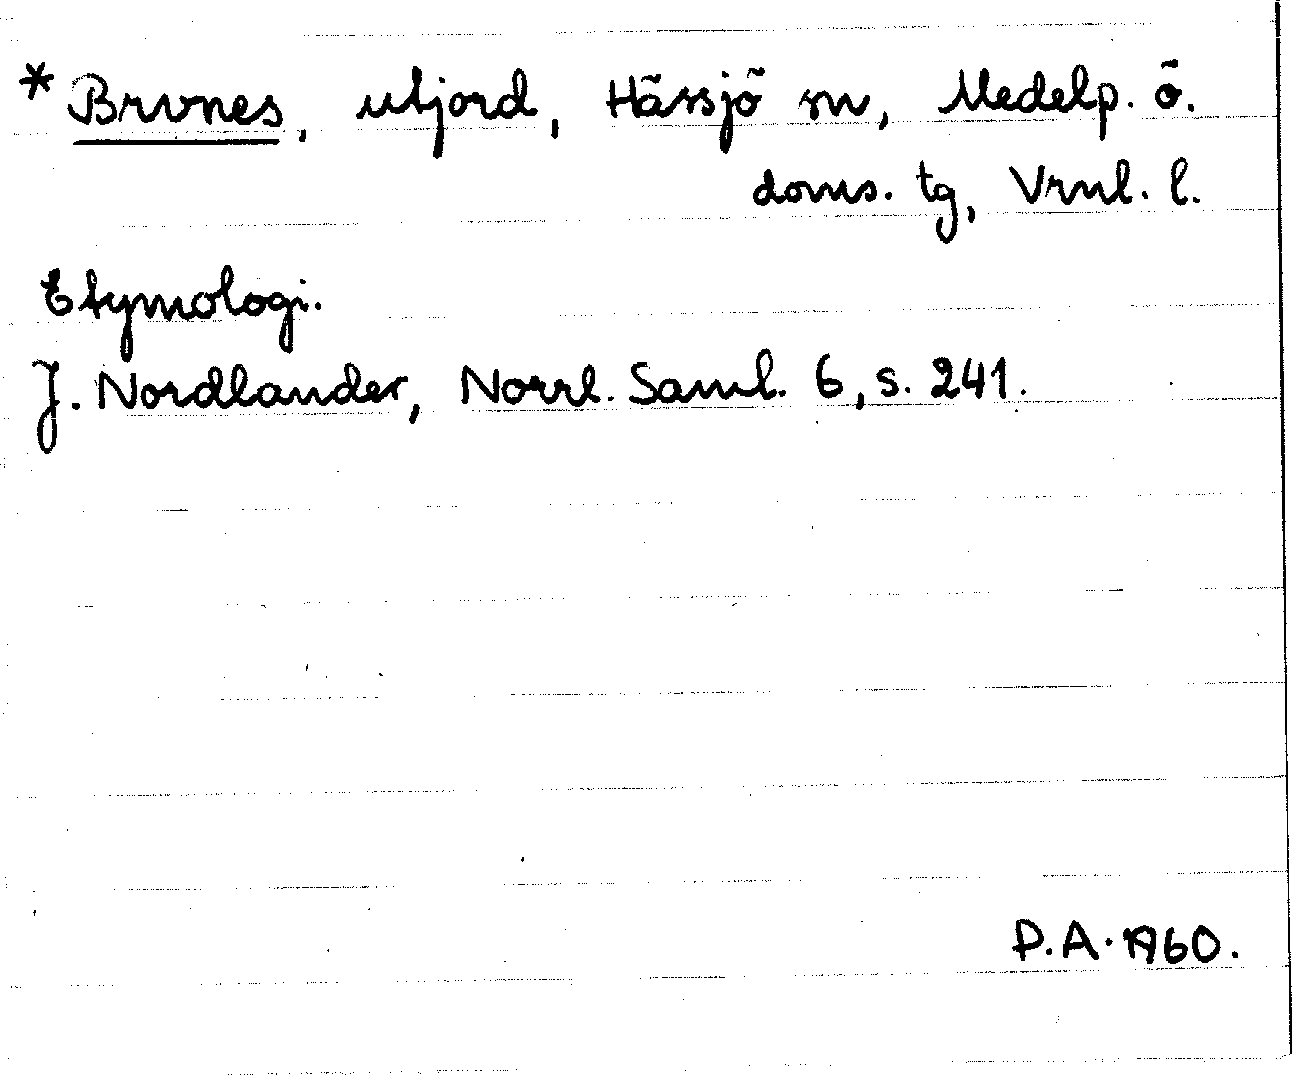 * Brvnes, utjord, Hässjö sn, Medelp. ö.
doms. tg, Vrnl. l.
Etymologi.
J. Nordlander, Norrl. Saml. 6, s. 241.
P.A. 1960.